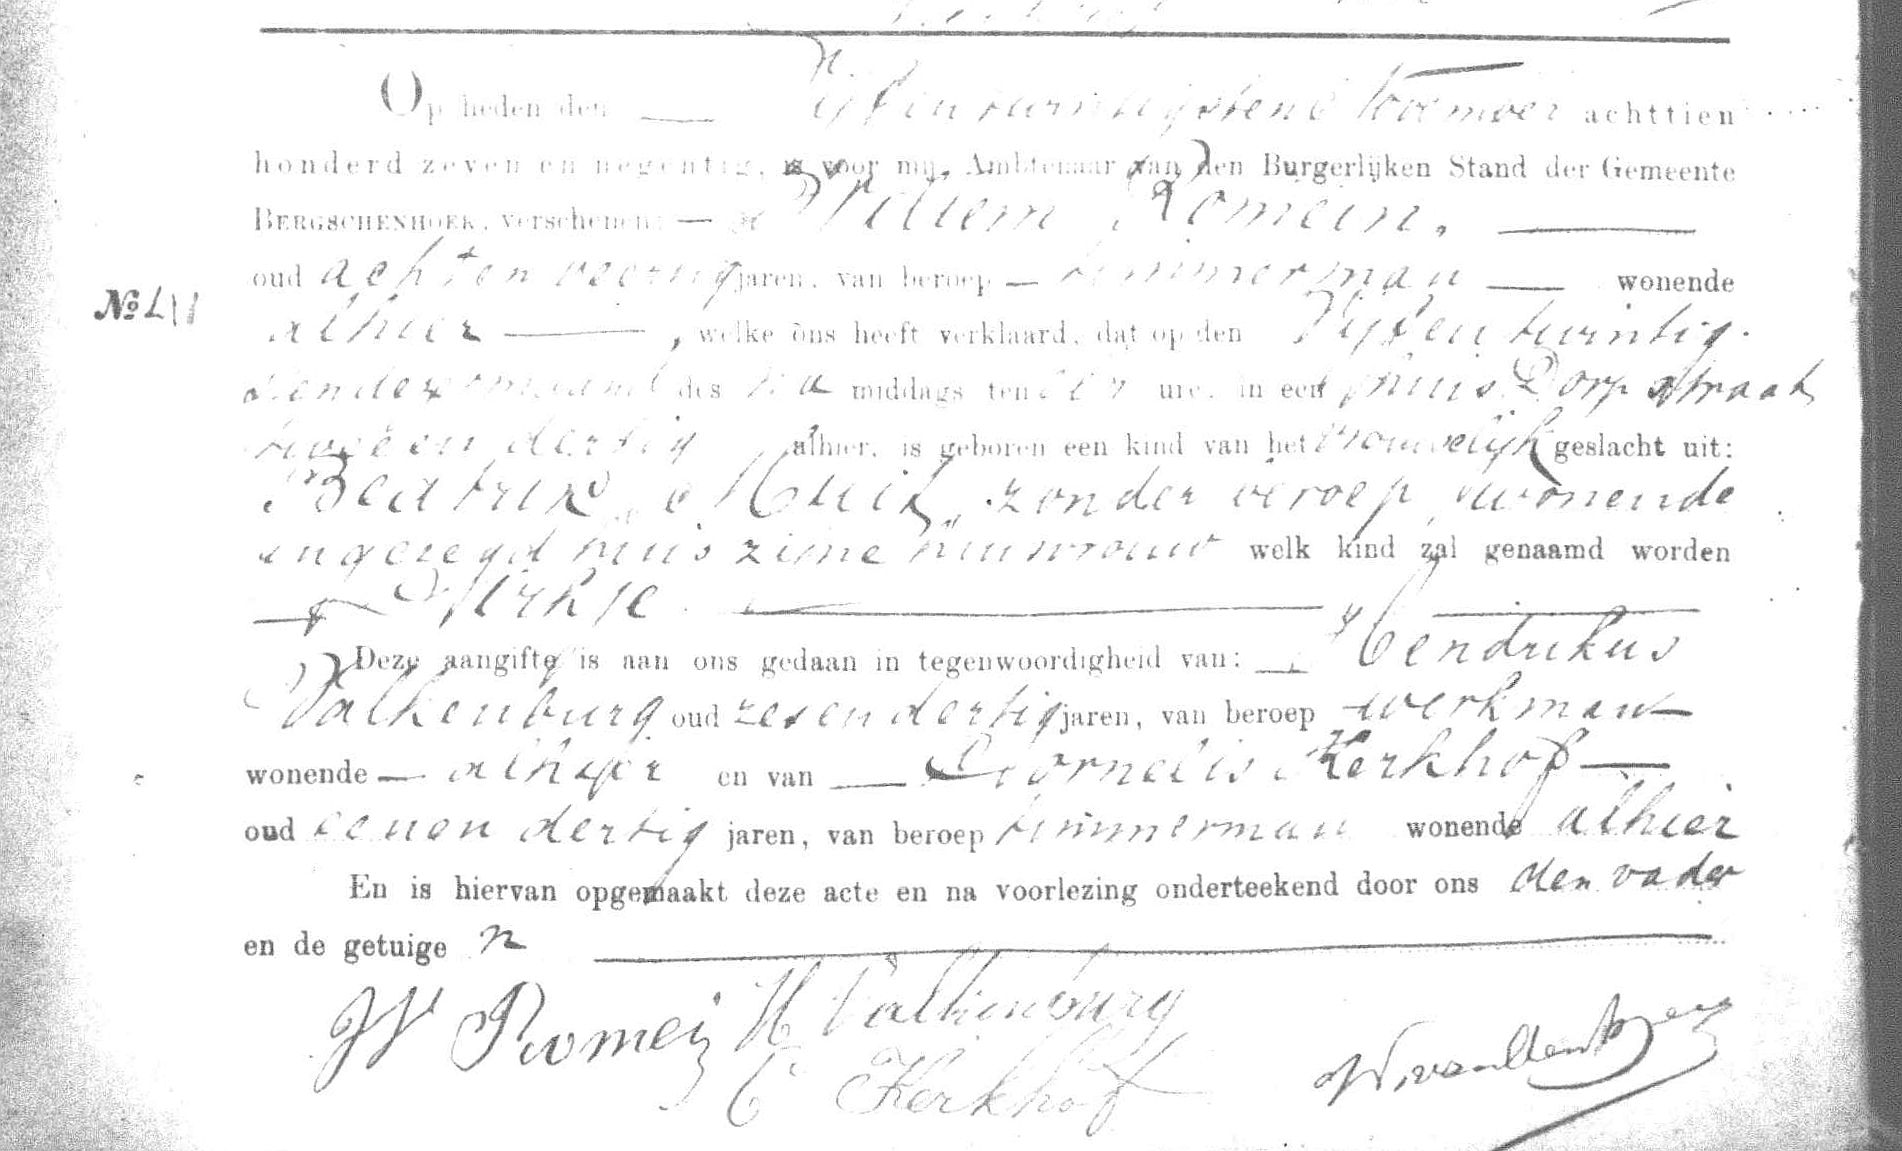 Op heden den Vijfentwintigsten November achttien
honderd zeven en negentig, is voor mij, Ambtenaar van den Burgerlijken Stand der Gemeente
BERGSCHENHOEK, verschenen: Willem Romein,
No 41
oud achtenveertig jaren, van beroep timmerman wonende
alhier, welke ons heeft verklaard, dat op den Vijfentwintig-
sten dezer maand des na middags ten ure, in een huis Dorpstraat
twee en dertig alhier, is geboren een kind van het vrouwelijk geslacht uit:
Beatrix Muik, zonder beroep, wonende
in gezegd huis zijne huisvrouw welk kind zal genaamd worden
Dirkje
Deze aangifte is aan ons gedaan in tegenwoordigheid van: Hendrikus
Valkenburg oud zesendertig jaren, van beroep werkman
wonende alhier en van Cornelis Kerkhof
oud eenen dertig jaren, van beroep timmerman wonende alhier
En is hiervan opgemaakt deze acte en na voorlezing onderteekend door ons den vader
en de getuigen
W Romein H Valkenburg
C Kerkhof W. van den Berg